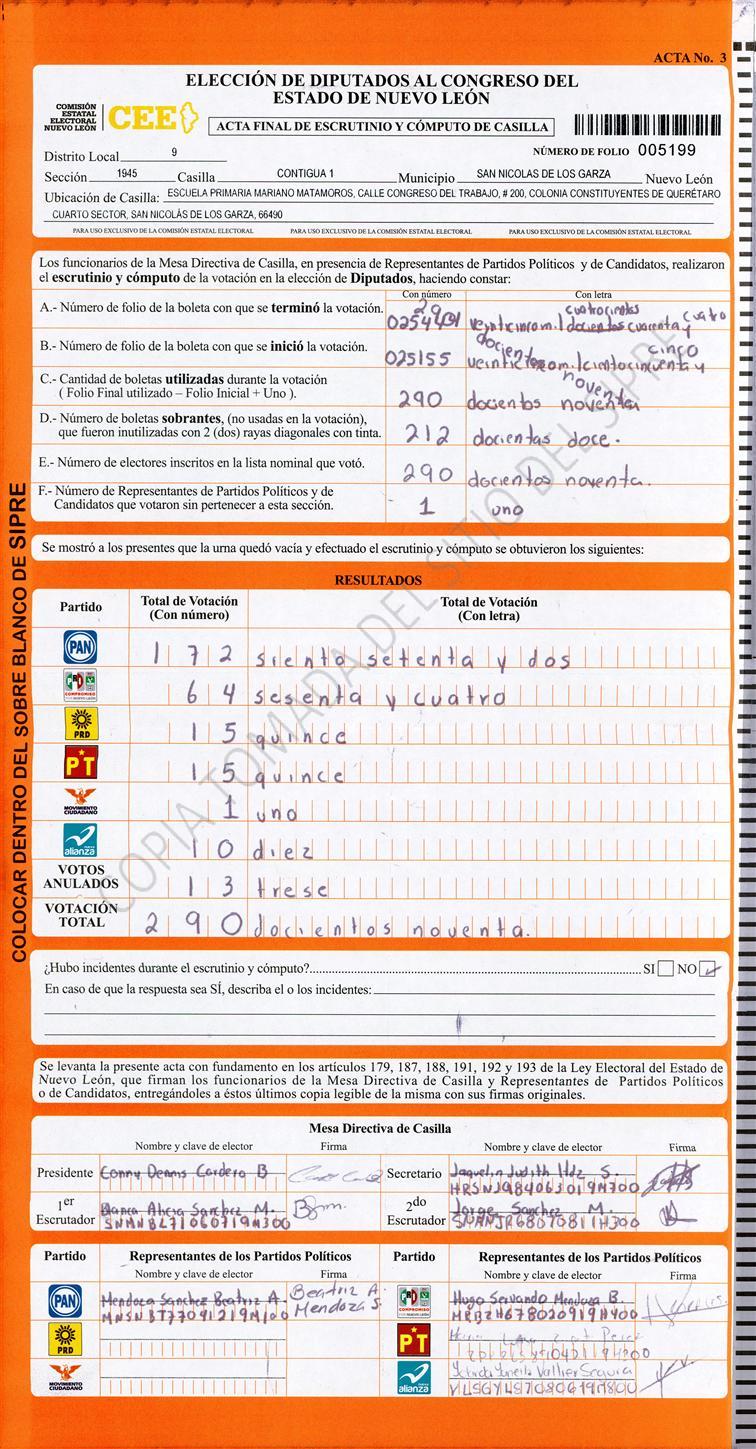 ACTA No. 3
ELECCIÓN DE DIPUTADOS AL CONGRESO DEL
ESTADO DE NUEVO LEÓN
COMISIÓN
ESTATAL
ELECTORAL
NUEVO LEÓN
CEE
ACTA FINAL DE ESCRUTINIO Y CÓMPUTO DE CASILLA
Distrito Local 9
NÚMERO DE FOLIO 005199
Sección 1945 Casilla CONTIGUA 1 Municipio SAN NICOLAS DE LOS GARZA Nuevo León
Ubicación de Casilla: ESCUELA PRIMARIA MARIANO MATAMOROS, CALLE CONGRESO DEL TRABAJO, # 200, COLONIA CONSTITUYENTES DE QUERÉTARO
CUARTO SECTOR, SAN NICOLÁS DE LOS GARZA, 66490
PARA USO EXCLUSIVO DE LA COMISIÓN ESTATAL ELECTORAL PARA USO EXCLUSIVO DE LA COMISIÓN ESTATAL ELECTORAL PARA USO EXCLUSIVO DE LA COMISIÓN ESTATAL ELECTORAL
Los funcionarios de la Mesa Directiva de Casilla, en presencia de Representantes de Partidos Políticos y de Candidatos, realizaron
el escrutinio y cómputo de la votación en la elección de Diputados, haciendo constar:
Con número Con letra
A.- Número de folio de la boleta con que se terminó la votación.
cuatrocientos cuatro
B.- Número de folio de la boleta con que se inició la votación.
025155 cinco
C.- Cantidad de boletas utilizadas durante la votación
( Folio Final utilizado – Folio Inicial + Uno ). 290 docientos noventa
D.- Número de boletas sobrantes, (no usadas en la votación),
que fueron inutilizadas con 2 (dos) rayas diagonales con tinta. 212 docientas doce.
E.- Número de electores inscritos en la lista nominal que votó. 290 docientos noventa.
F.- Número de Representantes de Partidos Políticos y de
Candidatos que votaron sin pertenecer a esta sección. 1 uno
Se mostró a los presentes que la urna quedó vacía y efectuado el escrutinio y cómputo se obtuvieron los siguientes:
RESULTADOS
Partido Total de Votación (Con número) Total de Votación (Con letra)
PAN 172 siento setenta y dos
PRD COMPROMISO POR NUEVO LEÓN 64 sesenta y cuatro
PRD 15 quince
PT 15 quince
MOVIMIENTO CIUDADANO 1 uno
alianza 10 diez
VOTOS ANULADOS 13 trese
VOTACIÓN TOTAL 290 docientos noventa.
¿Hubo incidentes durante el escrutinio y cómputo? SI NO
En caso de que la respuesta sea SÍ, describa el o los incidentes:
Se levanta la presente acta con fundamento en los artículos 179, 187, 188, 191, 192 y 193 de la Ley Electoral del Estado de
Nuevo León, que firman los funcionarios de la Mesa Directiva de Casilla y Representantes de Partidos Políticos
o de Candidatos, entregándoles a éstos últimos copia legible de la misma con sus firmas originales.
Mesa Directiva de Casilla
Nombre y clave de elector Firma Nombre y clave de elector Firma
Presidente Conny Dennis Cordero B Secretario Jaquelin Judith Hdz S.
HRSNJQ84063019M700
1er Escrutador Blanca Alicia Sanchez M. 2do Escrutador Jorge Sanchez M.
SNMNBL71060719M300 SNMNJR68070811H300
Partido Representantes de los Partidos Políticos Partido Representantes de los Partidos Políticos
Nombre y clave de elector Firma Nombre y clave de elector Firma
PAN Mendoza Sanchez Beatriz A. Beatriz A. Mendoza S. COMPROMISO POR NUEVO LEÓN Hugo Servando Mendoza B.
MNSNBT77091219M100
PRD PT
MOVIMIENTO CIUDADANO alianza
COLOCAR DENTRO DEL SOBRE BLANCO DE SIPRE
COPIA TOMADA DEL SITIO DEL SIPRE